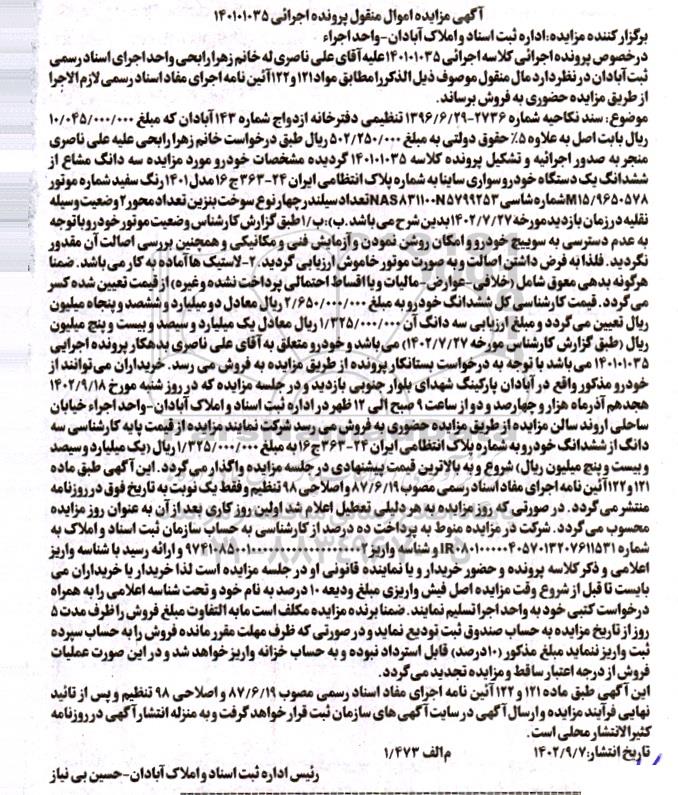 آگهی مزایده اموال منقول پرونده اجرائی ۱۴۰۱۰۱۰۳۵
برگزار کننده مزایده: اداره ثبت اسناد و املاک آبادان-واحد اجراء
درخصوص پرونده اجرائی کلاسه اجرائی ۱۴۰۱۰۱۰۳۵علیه آقای علی ناصری له خانم زهرا رابحی واحد اجرای اسناد رسمی
ثبت آبادان در نظر دارد مال منقول موصوف ذیل الذکر را مطابق مواد ۱۲۱ و۱۲۲آئین نامه اجرای مفاد اسناد رسمی لازم الاجرا
از طریق مزایده حضوری به فروش برساند.
موضوع: سند نکاحیه شماره ۲۷۳۶-۱۳۹۶/۶/۲۹ تنظیمی دفترخانه ازدواج شماره ۱۴۳ آبادان که مبلغ ۱۰/۰۴۵/۰۰۰/۰۰۰
ریال بابت اصل به علاوه ۵٪ حقوق دولتی به مبلغ ۵۰۲/۲۵۰/۰۰۰ ریال طبق درخواست خانم زهرا رابحی علیه علی ناصری
منجر به صدور اجرائیه و تشکیل پرونده کلاسه ۱۴۰۱۰۱۰۳۵ گردیده مشخصات خودرو مورد مزایده سه دانگ مشاع از
ششدانگ یک دستگاه خودرو سواری ساینا به شماره پلاک انتظامی ایران ۲۴-۳۶۳ج۱۶ مدل ۱۴۰۱ رنگ سفید شماره موتور
M۱۵/۹۶۵۰۵۷۸شماره شاسی NAS۸۳۱۱۰۰N۵۷۹۹۲۵۳تعداد سیلندر چهار نوع سوخت بنزین تعداد محور ۲ وضعیت وسیله
نقلیه در زمان بازدید مورخه ۱۴۰۲/۷/۲۷ بدین شرح می باشد. ب):ب/۱طبق گزارش کارشناس وضعیت موتور خودرو با توجه
به عدم دسترسی به سوییچ خودرو و امکان روشن نمودن و آزمایش فنی و مکانیکی و همچنین بررسی اصالت آن مقدور
نگردید. فلذا به فرض داشتن اصالت و به صورت موتور خاموش ارزیابی گردید. ۲-لاستیک ها آماده به کار می باشد. ضمنا
هرگونه بدهی معوق شامل (خلافی-عوارض-مالیات و یا اقساط احتمالی پرداخت نشده و غیره) از قیمت تعیین شده کسر
می گردد. قیمت کارشناسی کل ششدانگ خودرو به مبلغ ۲/۶۵۰/۰۰۰/۰۰۰ ریال معادل دو میلیارد و ششصد و پنجاه میلیون
ریال تعیین می گردد و مبلغ ارزیابی سه دانگ آن ۱/۳۲۵/۰۰۰/۰۰۰ ریال معادل یک میلیارد و سیصد و بیست و پنج میلیون
ریال (طبق گزارش کارشناس مورخه ۱۴۰۲/۷/۲۷) می باشد و خودرو متعلق به آقای علی ناصری بدهکار پرونده اجرایی
۱۴۰۱۰۱۰۳۵ می باشد با توجه به درخواست بستانکار پرونده از طریق مزایده به فروش می رسد. خریداران می توانند از
خودرو مذکور واقع در آبادان پارکینگ شهدای بلوار جنوبی بازدید و در جلسه مزایده که در روز شنبه مورخ ۱۴۰۲/۹/۱۸
هجدهم آذرماه هزار و چهارصد و دو از ساعت ۹ صبح الی ۱۲ ظهر در اداره ثبت اسناد و املاک آبادان-واحد اجراء خیابان
ساحلی اروند سالن مزایده از طریق مزایده حضوری به فروش می رسد شرکت نمایند مزایده از قیمت پایه کارشناسی سه
دانگ از ششدانگ خودرو به شماره پلاک انتظامی ایران ۲۴-۳۶۳ج۱۶به مبلغ ۱/۳۲۵/۰۰۰/۰۰۰ ریال (یک میلیارد و سیصد
و بیست و پنج میلیون ریال) شروع و به بالاترین قیمت پیشنهادی در جلسه مزایده واگذار می گردد. این آگهی طبق ماده
۱۲۱ و ۱۲۲ آئین نامه اجرای مفاد اسناد رسمی مصوب ۸۷/۶/۱۹ و اصلاحی ۹۸ تنظیم و فقط یک نوبت به تاریخ فوق در روزنامه
منتشر می گردد. در صورتی که روز مزایده به هر دلیلی تعطیل اعلام شد اولین روز کاری بعد از آن به عنوان روز مزایده
محسوب می گردد. شرکت در مزایده منوط به پرداخت ده درصد از کارشناسی به حساب سازمان ثبت اسناد و املاک به
و ارائه رسید با شناسه واریز
اعلامی و ذکر کلاسه پرونده و حضور خریدار و یا نماینده قانونی او در جلسه مزایده است لذا خریدار یا خریداران می
بایست تا قبل از شروع وقت مزایده اصل فیش واریزی مبلغ ودیعه ۱۰ درصد به نام خود و تحت شناسه اعلامی را به همراه
درخواست کتبی خود به واحد اجرا تسلیم نمایند. ضمنا برنده مزایده مکلف است مابه التفاوت مبلغ فروش را ظرف مدت ۵
روز از تاریخ مزایده به حساب صندوق ثبت تودیع نماید و در صورتی که ظرف مهلت مقرر مانده فروش را به حساب سپرده
ثبت واریز ننماید مبلغ مذکور (۱۰درصد) قابل استرداد نبوده و به حساب خزانه واریز خواهد شد و در این صورت عملیات
فروش از درجه اعتبار ساقط و مزایده تجدید می گردد.
این آگهی طبق ماده ۱۲۱ و ۱۲۲ آئین نامه اجرای مفاد اسناد رسمی مصوب ۸۷/۶/۱۹ و اصلاحی ۹۸ تنظیم و پس از تائید
نهایی فرآیند مزایده و ارسال آگهی در سایت آگهی های سازمان ثبت قرار خواهد گرفت و به منزله انتشار آگهی در روزنامه
کثیرالانتشار محلی است.
تاریخ انتشار: ۱۴۰۲/۹/۷ م الف ۱/۴۷۳
رئیس اداره ثبت اسناد و املاک آبادان-حسین بی نیاز